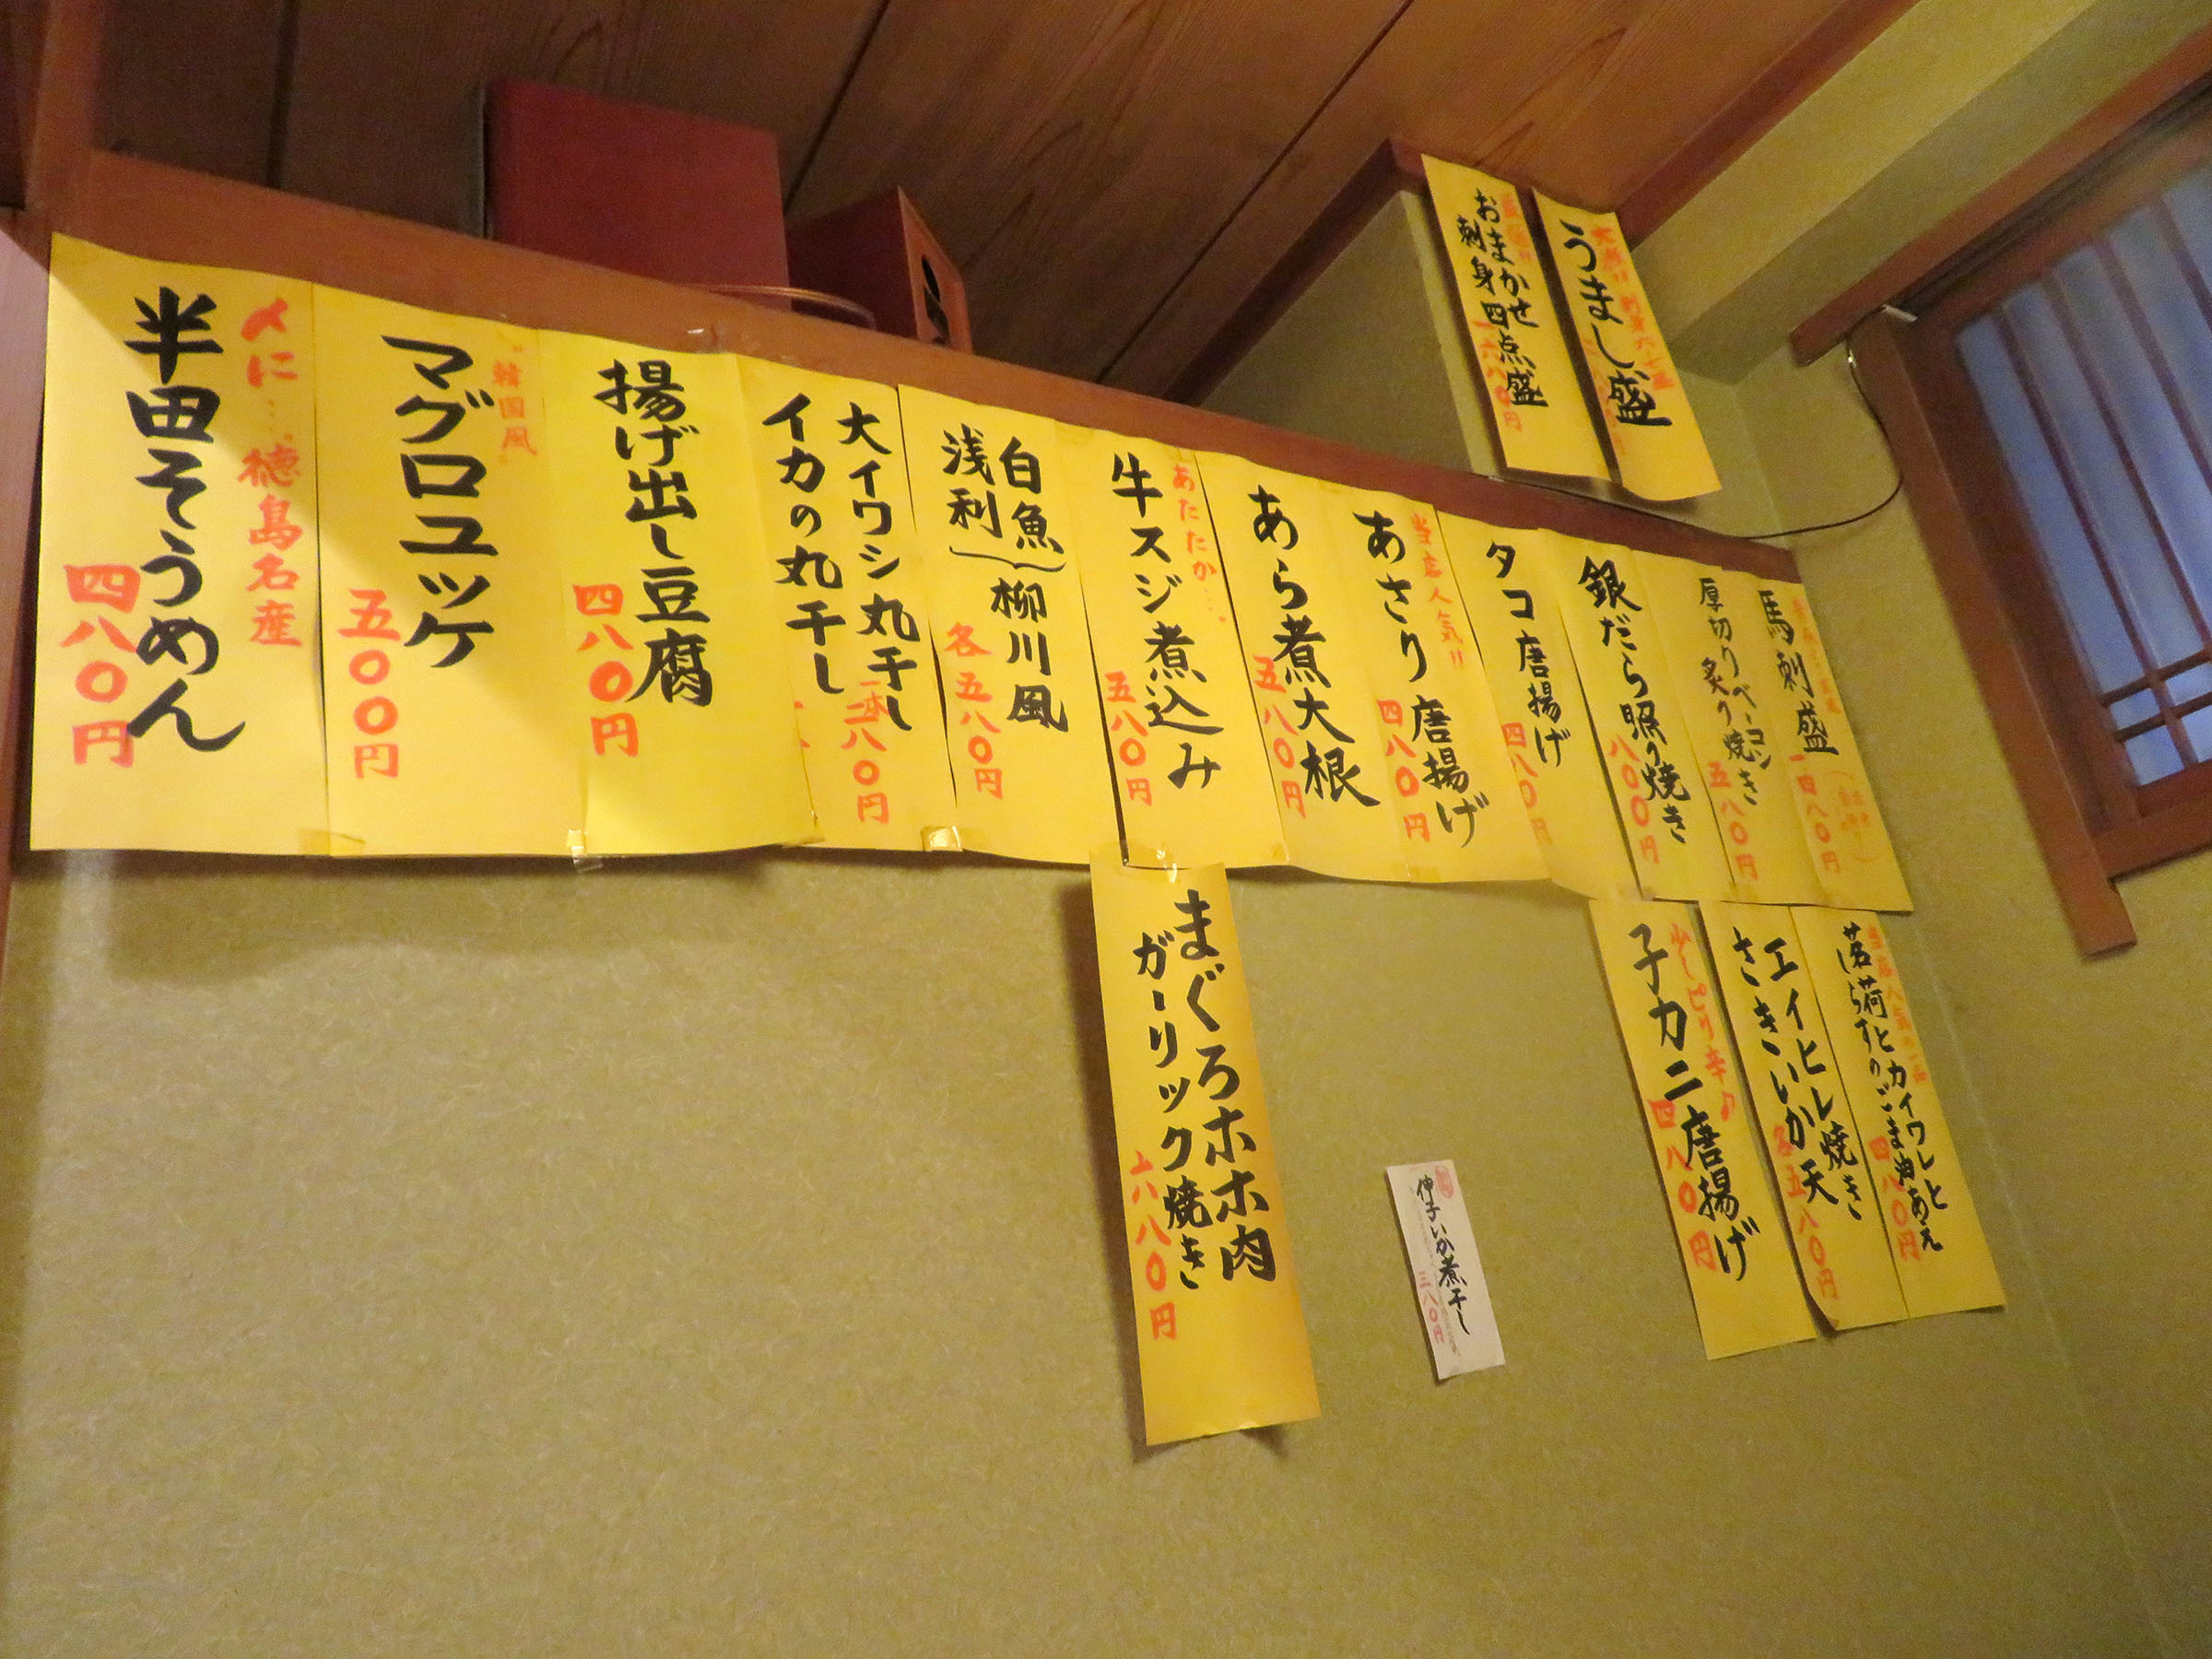 うまし盛
おまかせ
刺身四点盛
一六八〇円
馬刺盛
一四八〇円
厚切りベーコン
炙り焼き
五八〇円
銀だら照り焼き
八〇〇円
タコ唐揚げ
四八〇円
当店人気!!
あさり唐揚げ
四八〇円
あら煮大根
五八〇円
あたたか…。
牛スジ煮込み
五八〇円
白魚
浅利
柳川風
各五八〇円
大イワシ丸干し
イカの丸干し
二八〇円
揚げ出し豆腐
四八〇円
"韓国風"
マグロユッケ
五〇〇円
〆に…。徳島名産
半田そうめん
四八〇円
当店人気の一品
茗荷とカイワレと
すりごま油あえ
四八〇円
エイヒレ焼き
さきいか天
各五八〇円
少しピリ辛♪
子カニ唐揚げ
四八〇円
いか煮干し
三八〇円
まぐろホホ肉
ガーリック焼き
六八〇円